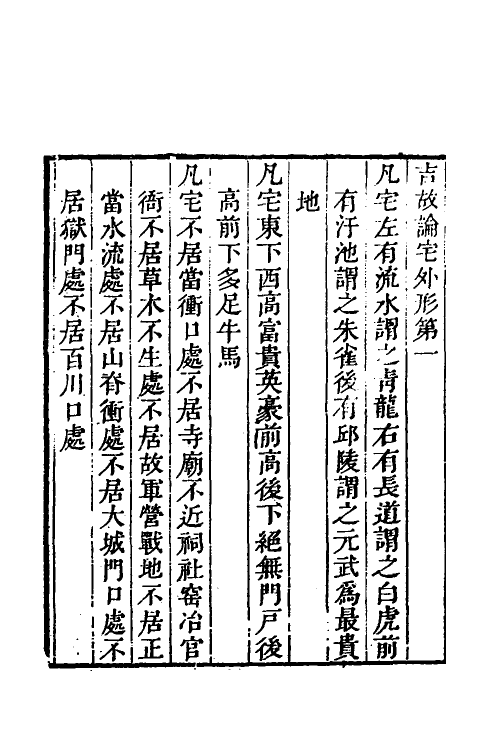 吉故論宅外形第一
凡宅左有流水謂之青龍右有長道謂之白虎前
有汙池謂之朱雀後有邱陵謂之元武爲最貴
地
凡宅東下西高富貴英豪前高後下絕無門戸後
高前下多足牛馬
凡宅不居當衝口處不居寺廟不近祠社窑冶官
衙不居草木不生處不居故軍營戰地不居正
當水流處不居山脊衝處不居大城門口處不
居獄門處不居百川口處